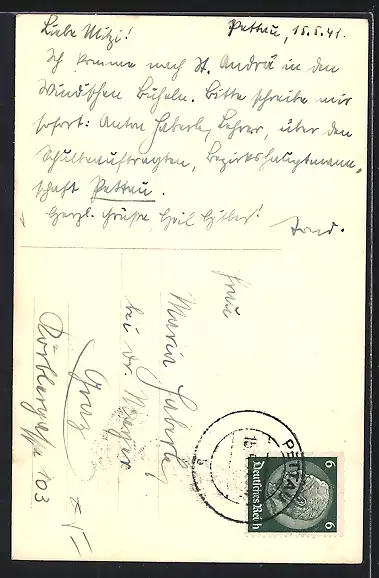 Pettau, 15.5.41.
Liebe Mitzi!
Ich komme nach St. Andrä in den
Windischen Büheln. Bitte schreibe mir
sofort: Anton Haberle, Lehrer, über den
Schulbeauftragten, Bezirkshauptmann-
schaft Pettau.
Herzl. Grüße, Heil Hitler!
Frau
Maria Haberle,
bei Dr. Mayer
Graz
Körblergasse 103
PETTAU
15
b
Deutsches Reich
6
6